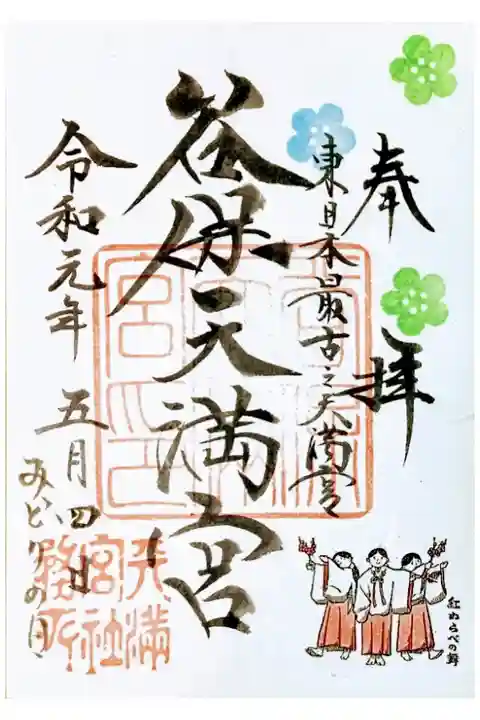 奉拝
東日本最古之天満宮
谷保天満宮
令和元年 五月四日
みどりの日
天満宮社務所
紅わらべの舞